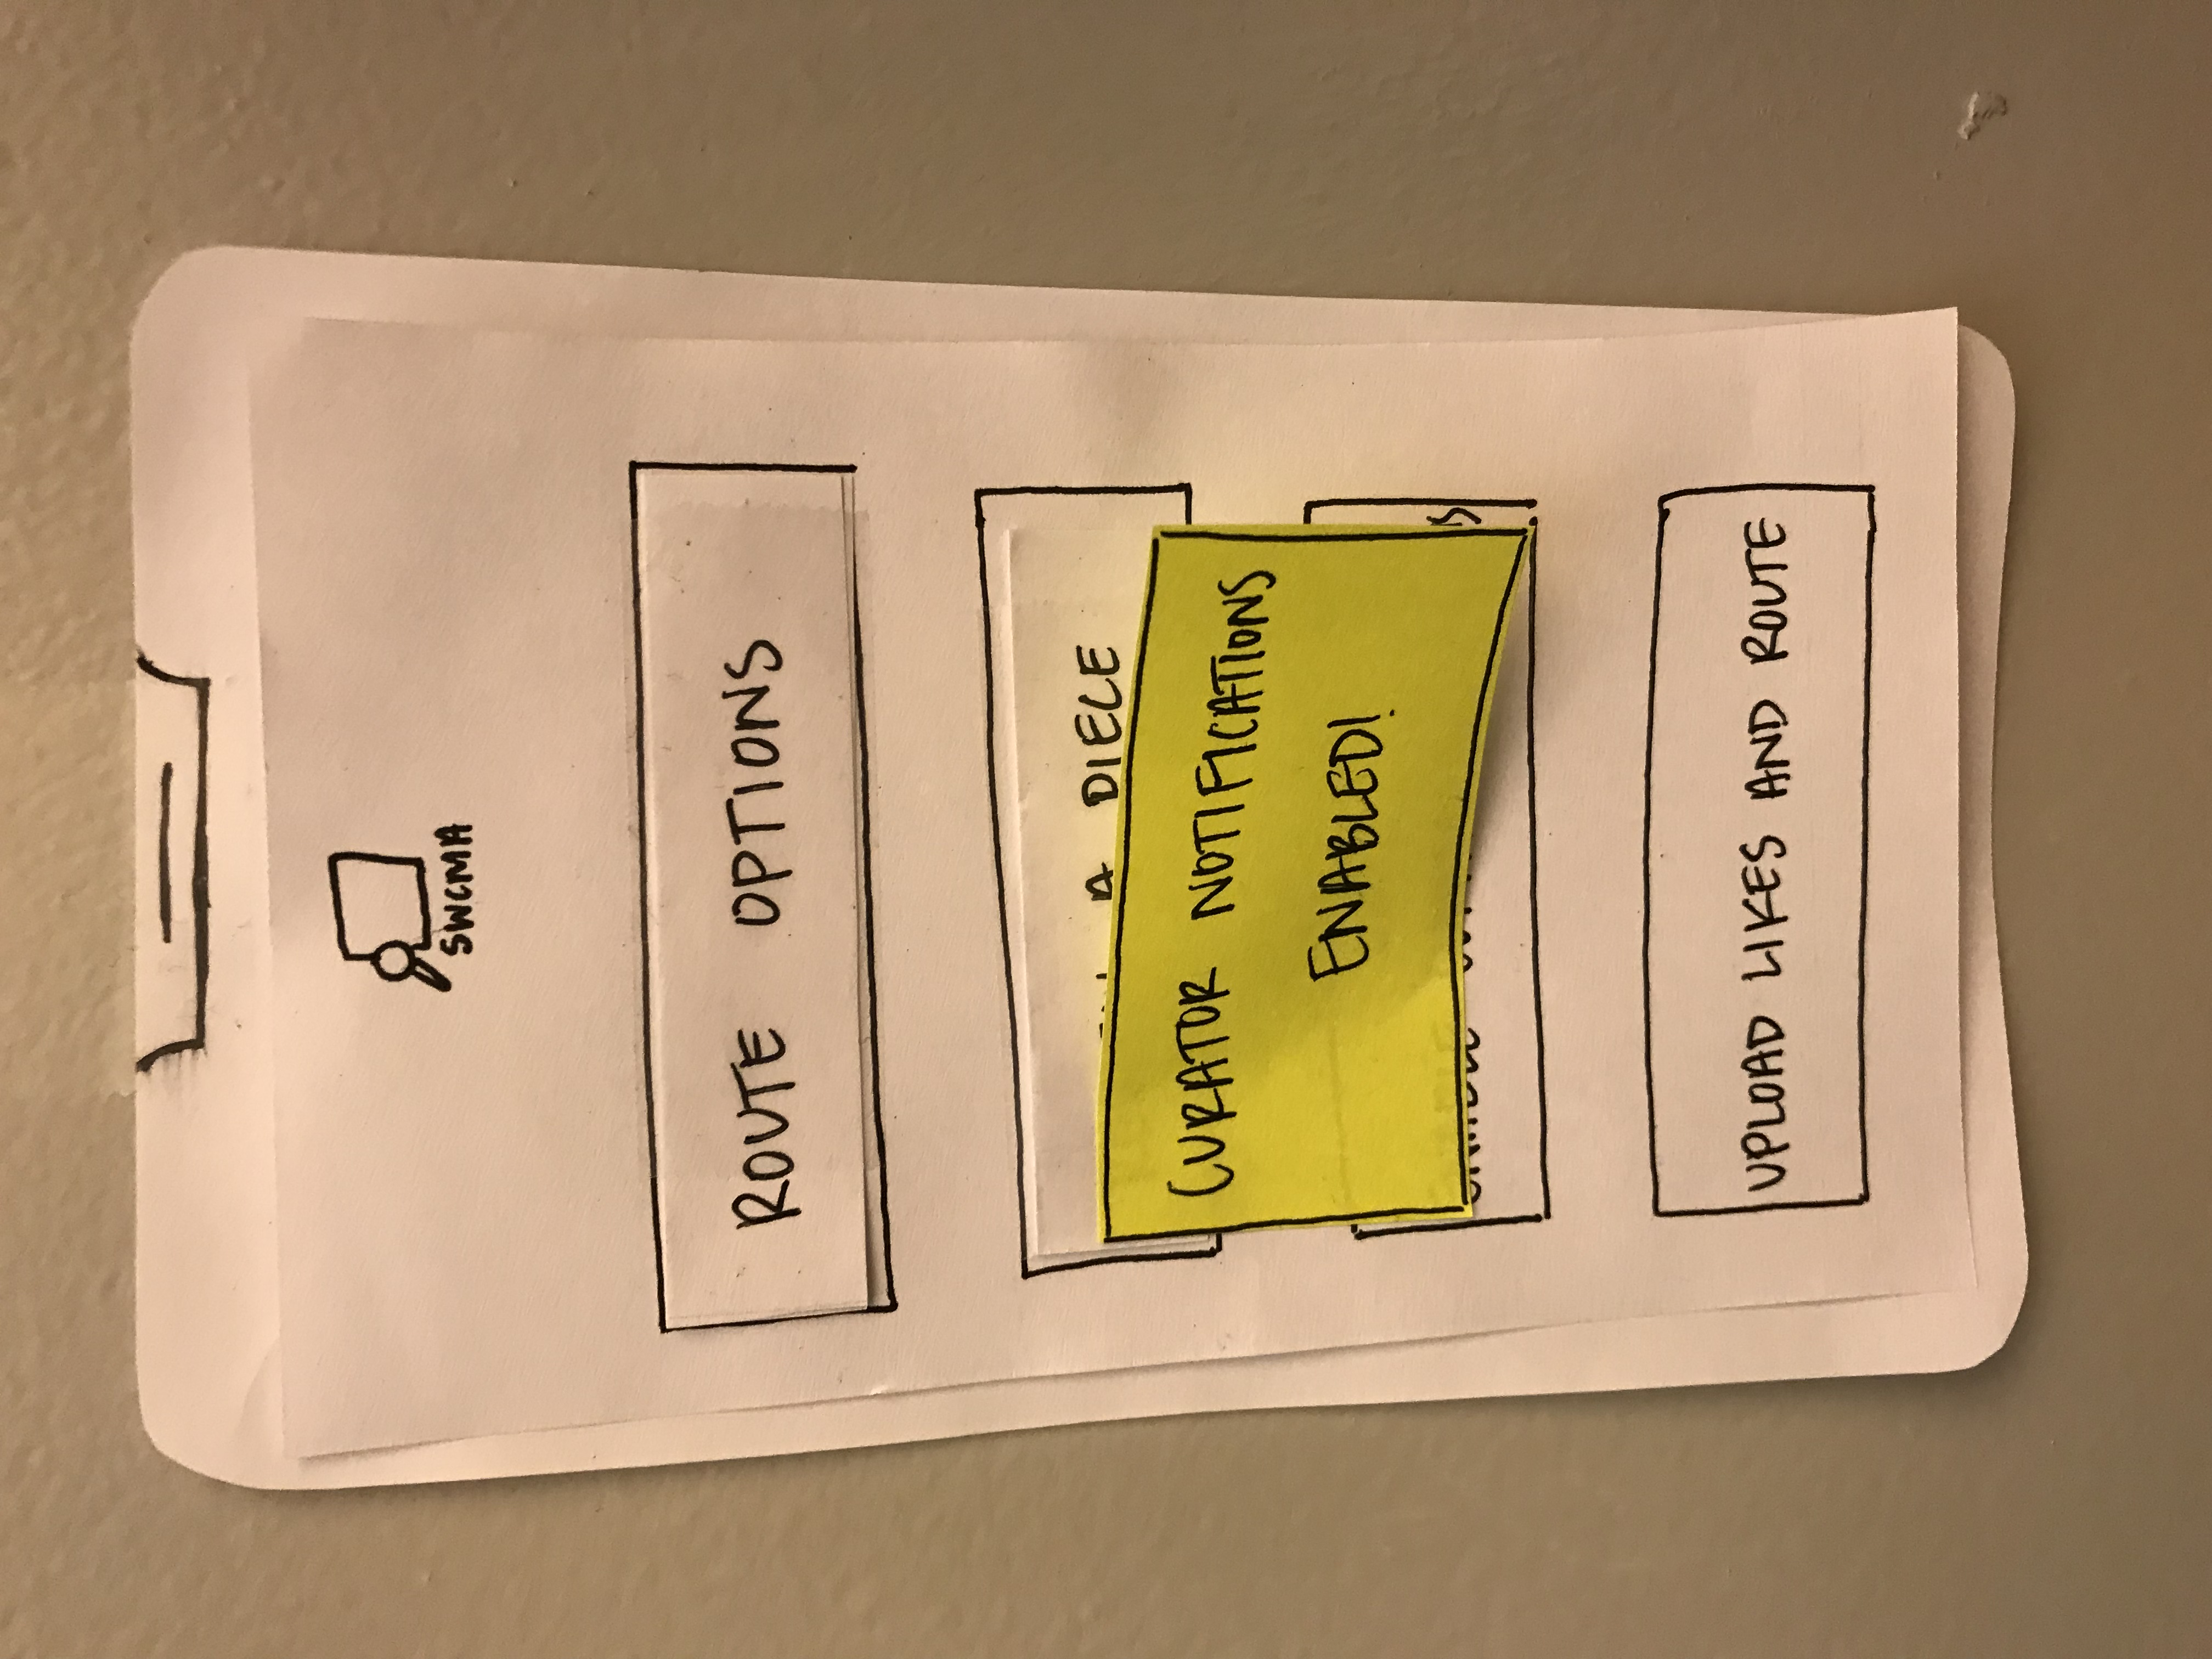 SWCMA
ROUTE OPTIONS
A DIECE
CURATOR NOTIFICATIONS
ENABLED!
ENABLE
UPLOAD LIKES AND ROUTE